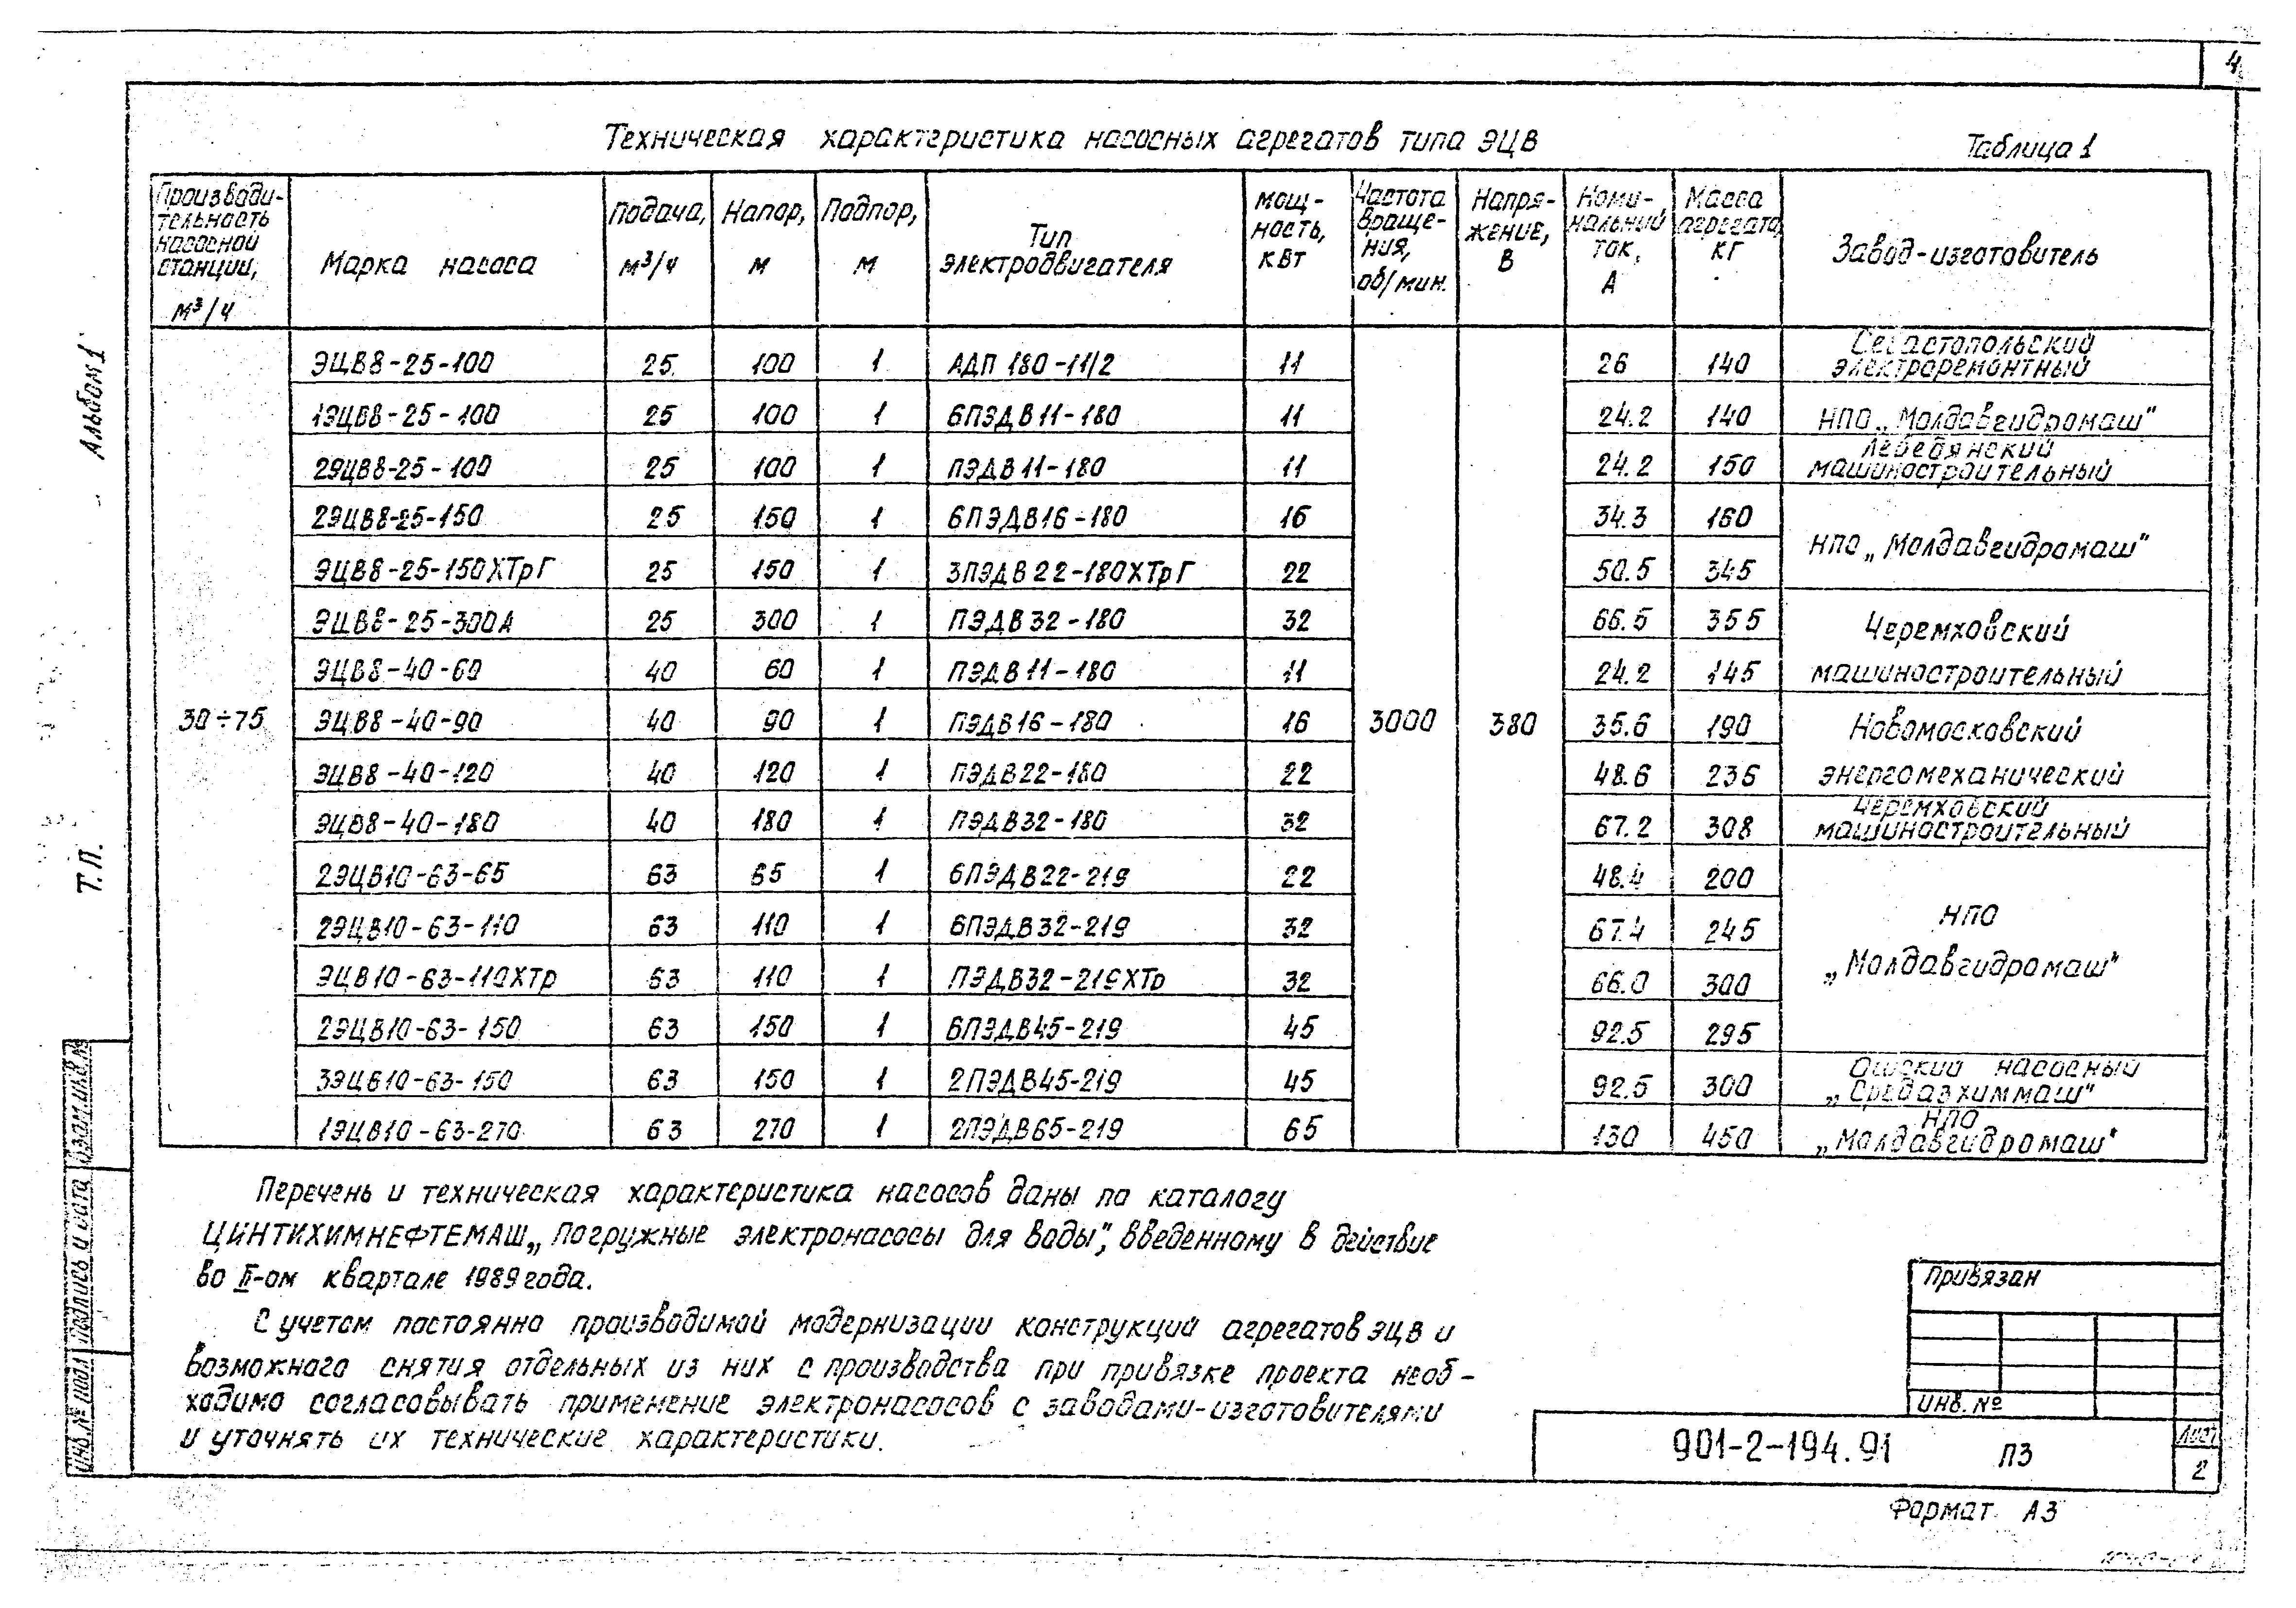 4
Техническая характеристика насосных агрегатов типа ЭЦВ
Таблица 1
Производи-
тельность
насосной
станции,
м³/ч
Марка насоса
Подача,
м³/ч
Напор,
м
Подпор,
м
Тип
электродвигателя
мощ-
ность,
кВт
Частота
враще-
ния,
об/мин.
Напря-
жение,
В
Номи-
нальный
ток,
А
Масса
агрегата,
кг
Завод-изготовитель
30÷75
3000
380
ЭЦВ8-25-100 25 100 1 АДП 180-11/2 11 26 140 Севастопольский
электроремонтный
1ЭЦВ8-25-100 25 100 1 6ПЭДВ11-180 11 24.2 140 НПО „Молдавгидромаш"
2ЭЦВ8-25-100 25 100 1 ПЭДВ11-180 11 24.2 150 Лебедянский
машиностроительный
2ЭЦВ8-25-150 25 150 1 6ПЭДВ16-180 16 34.3 160
НПО „Молдавгидромаш"
ЭЦВ8-25-150ХТрГ 25 150 1 3ПЭДВ22-180ХТрГ 22 50.5 345
ЭЦВ8-25-300А 25 300 1 ПЭДВ32-180 32 66.5 355 Черемховский
ЭЦВ8-40-60 40 60 1 ПЭДВ11-180 11 24.2 145 машиностроительный
ЭЦВ8-40-90 40 90 1 ПЭДВ16-180 16 35.6 190 Новомосковский
ЭЦВ8-40-120 40 120 1 ПЭДВ22-180 22 48.6 235 энергомеханический
ЭЦВ8-40-180 40 180 1 ПЭДВ32-180 32 67.2 308 Черемховский
машиностроительный
2ЭЦВ10-63-65 63 65 1 6ПЭДВ22-219 22 48.4 200
2ЭЦВ10-63-110 63 110 1 6ПЭДВ32-219 32 67.4 245 НПО
ЭЦВ10-63-110ХТр 63 110 1 ПЭДВ32-219ХТр 32 66.0 300 „Молдавгидромаш"
2ЭЦВ10-63-150 63 150 1 6ПЭДВ45-219 45 92.5 295
3ЭЦВ10-63-150 63 150 1 2ПЭДВ45-219 45 92.5 300 Ошский насосный
„Средазхиммаш"
1ЭЦВ10-63-270 63 270 1 2ПЭДВ65-219 65 130 450 НПО
„Молдавгидромаш"
Перечень и техническая характеристика насосов даны по каталогу
ЦИНТИХИМНЕФТЕМАШ „Погружные электронасосы для воды", введенному в действие
во II-ом квартале 1989 года.
С учетом постоянно производимой модернизации конструкций агрегатов ЭЦВ и
возможного снятия отдельных из них с производства при привязке проекта необ-
ходимо согласовывать применение электронасосов с заводами-изготовителями
и уточнять их технические характеристики.
Альбом 1
Т.П.
Взам.инв.№
Подпись и дата
Инв.№ подл
Привязан
Инв. №
901-2-194.91 ПЗ
Лист
2
Формат А3